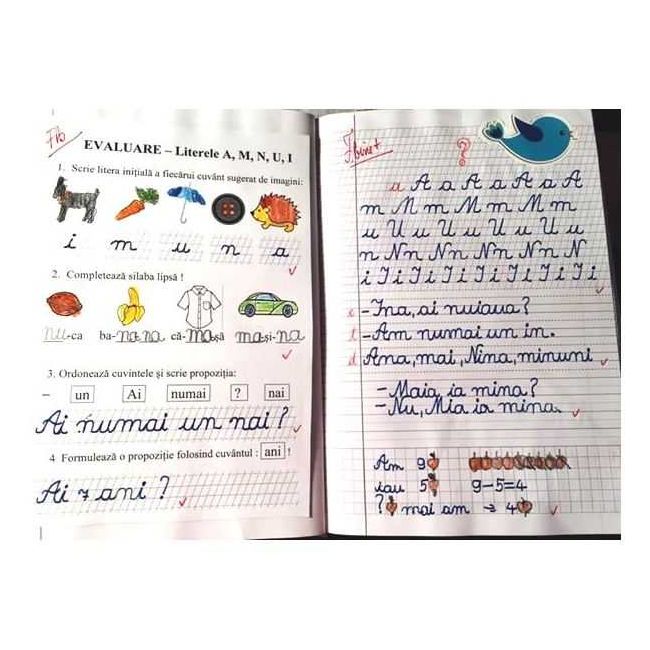 Fb
EVALUARE – Literele A, M, N, U, I
1. Scrie litera inițială a fiecărui cuvânt sugerat de imagini:
i m u n a
2. Completează silaba lipsă !
nu-ca ba-na na că-ma-șă ma-și-na
3. Ordonează cuvintele și scrie propoziția:
– un Ai numai ? nai
Ai numai un nai ?
4 Formulează o propoziție folosind cuvântul : ani !
Ai 7 ani ?
F. bine +
?
a A a A a A a A
m M m M m M m
u U u U u U u U u
n N n N n N n N n N
i I i I i I i I i I i I i I i
c - Ina, ai nuiaua?
t - Am numai un in.
d Ana, mai, Nina, minuni
- Maia ia mina?
- Nu, Mia ia mina.
Am 9
iau 5 9-5=4
? mai am → 4